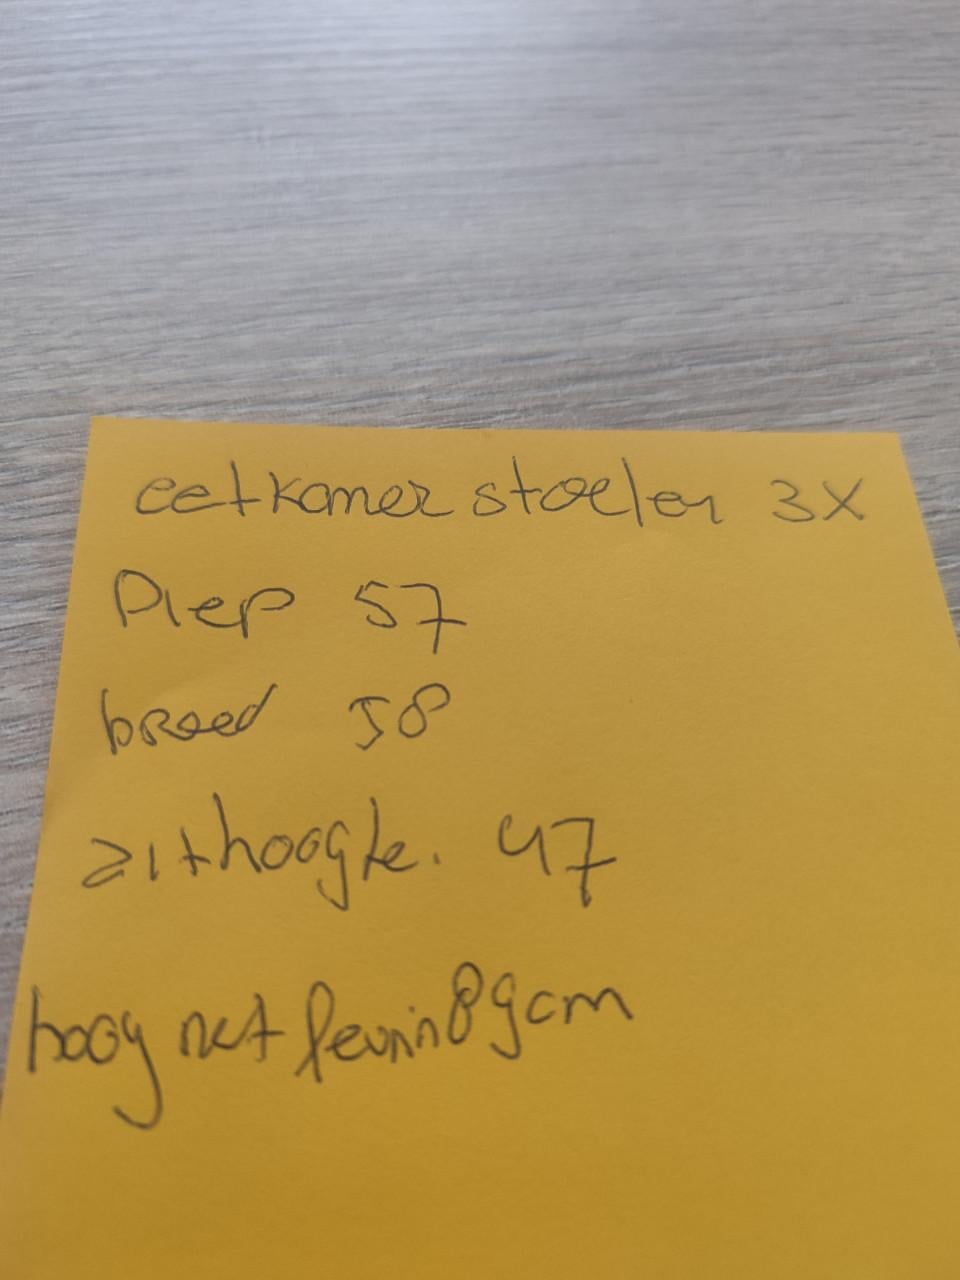 eetkamer stoelen 3X
Diep 57
breed 58
zithoogte. 47
hoog met leunin 89cm